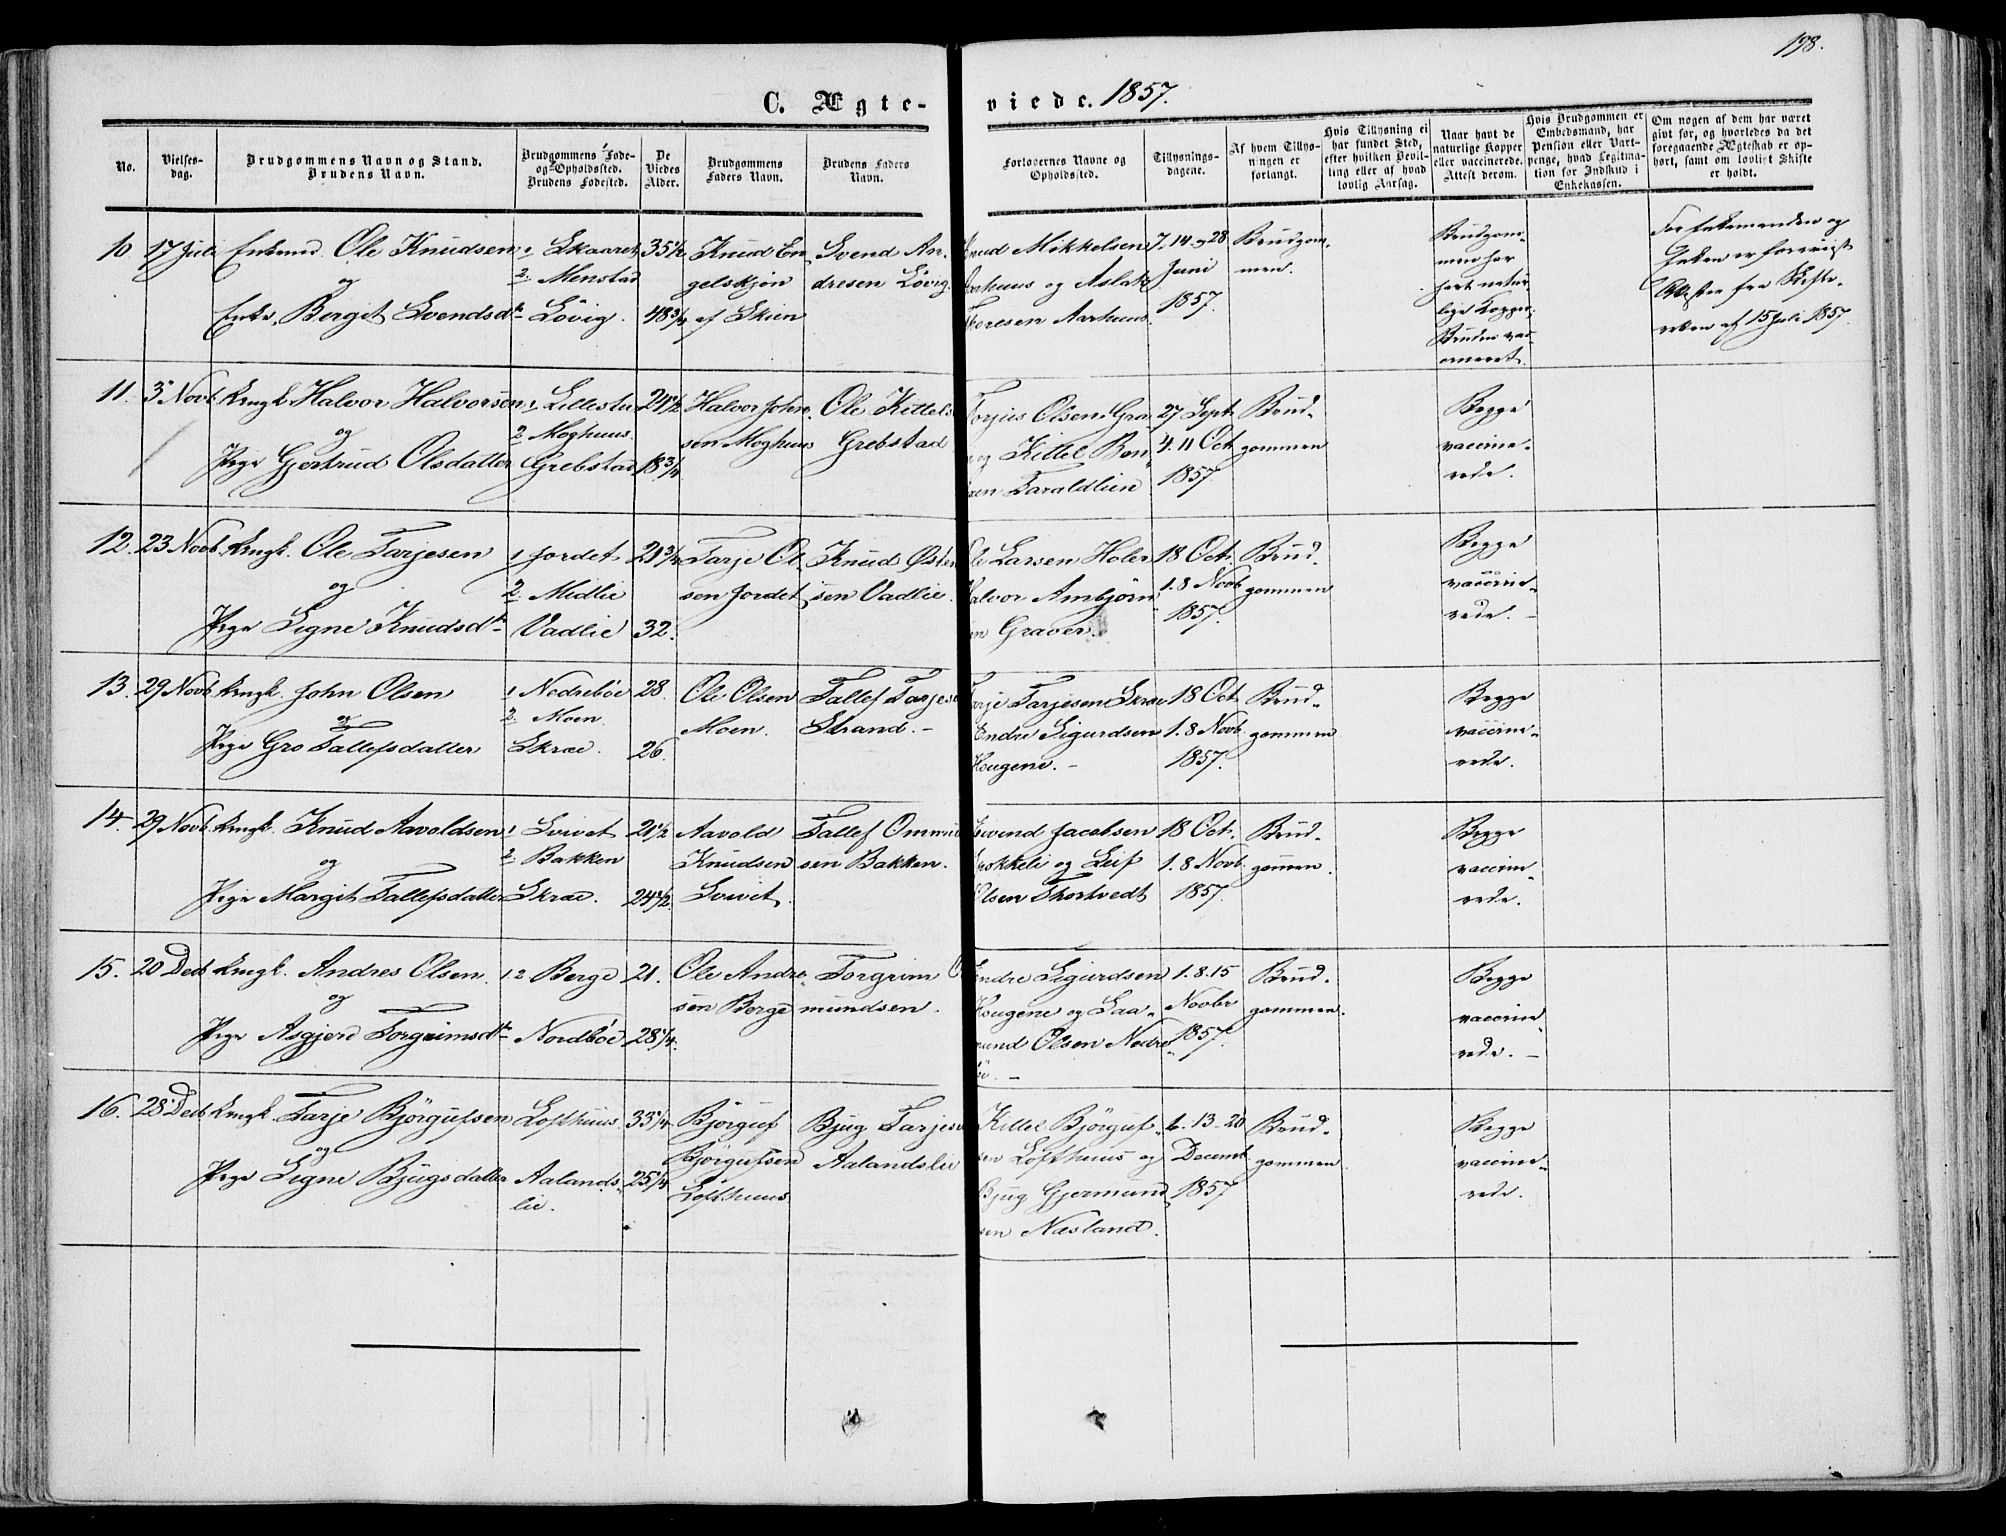 198.
C. Ægte-
viede. 1857.
No.
Vielses-
dag.
Brudgommens Navn og Stand.
Brudens Navn.
Brudgommens Føde-
og Opholdssted.
Brudens Fødested.
De
Viedes
Alder.
Brudgommens
Faders Navn.
Brudens Faders
Navn.
Forlovernes Navne og
Opholdssted.
Tillysnings-
dagene.
Af hvem Tillys-
ningen er
forlangt.
Hvis Tillysning ei
har fundet Sted,
efter hvilken Bevil-
ling eller af hvad
lovlig Aarsag.
Naar havt de
naturlige Kopper
eller vaccinerede.
Attest derom.
Hvis Brudgommen er
Embedsmand, har
Pension eller Vart-
penge, hvad Legitima-
tion for Indskud i
Enkekassen.
Om nogen af dem har været
givt før, og hvorledes da det
foregaaende Ægteskab er op-
hørt, samt om lovligt Skifte
er holdt.
10
17 Juli
Enkemd. Ole Knudsen
og
Enke, Bergit Svendsdr
1 Skaaret
2. Menstad
Lövig.
35 1/2
48 3/4
Knud En
gelskjön
af Skien
Svend An-
dresen Lövig.
Knud Mikkelsen
Aarhuus og Aslak
Toresen Aarhuus.
7. 14 og 28
Juni
1857.
Brudgom-
men.
Brudgom-
men har
havt natur-
lige Kopper,
Bruden vac-
cineret.
For Enkemanden og
Enken er foreviist
Attester fra Skifte-
retten af 15 Juli 1857.
11.
3 Novb.
Ungk. Halvor Halvorsen
og
Pige Gjertrud Olsdatter
1 Lillestu
2 Moghuus.
Grebstad
24 1/2
18 3/4
Halvor John
sen Moghuus
Ole Kittels
Grebstad
Torjus Olsen Gra
og Kittel Bon
sen Taraldlien
27 Sept
4. 11 Oct
1857
Brud-
gommen
Begge
vaccine-
rede.
12.
23 Novb.
Ungk. Ole Tarjesen
og
Pige Signe Knudsdr
1 Jordet
2. Midlie
Vadlie
21 3/4
32.
Tarje Ol
sen Jordet
Knud Østen
sen Vadlie.
Ole Larsen Holer
Halvor Ambjörn
sen Graver.
18 Oct.
1. 8 Novb
1857.
Brud-
gommen
Begge
vaccine-
rede. -
13.
29 Novb.
Ungk. John Olsen
og
Pige Gro Tallefsdatter
1 Nedrebøe
2. Moen.
Skræ.
28.
26.
Ole Olsen
Moen.
Tallef Tarjese
Strand. -
Tarje Tarjesen Skræ
Endre Sigurdsen
Hougene. -
18 Oct.
1. 8 Novb.
1857.
Brud-
gommen
Begge
vaccine-
rede.
14.
29 Novb.
Ungk. Knud Aavoldsen
og
Pige Margit Tallefsdatter
1 Loivet
2. Bakken
Skræ.
21 1/2
24 1/2.
Aavold
Knudsen
Loivet.
Tallef Ommun
sen Bakken.
Eivend Jacobsen
Krokkeli og Leif
Olsen Thortvedt
18 Oct.
1. 8 Novb.
1857.
Brud-
gommen.
Begge
vaccine-
rede.
15.
20 Decb
Ungk. Andres Olsen.
og
Pige Asgjerd Torgrimsdr
1 2 Berge
Nordbøe
21.
28 1/4.
Ole Andre-
sen Berge
Torgrim O
mundsen.
Endre Sigurdsen
Hougene og Laa-
mund Olsen Nedre
bøe. -
1. 8. 15
Novbr
1857.
Brud-
gommen.
Begge
vaccine-
rede. -
16.
28 Decb
Ungk. Tarje Björgufsen
og
Pige Signe Bjugsdatter
Lofthuus.
Aalands-
lie.
33 1/4
25 1/4
Björguf
Björgufsen
Lofthuus
Bjug Tarjese
Aalandslie
Kittel Björguf-
sen Lofthuus og
Bjug Gjermund
sen Næsland.
6. 13 - 20
Decemb.
1857
Brud-
gommen
Begge
vaccine-
rede.